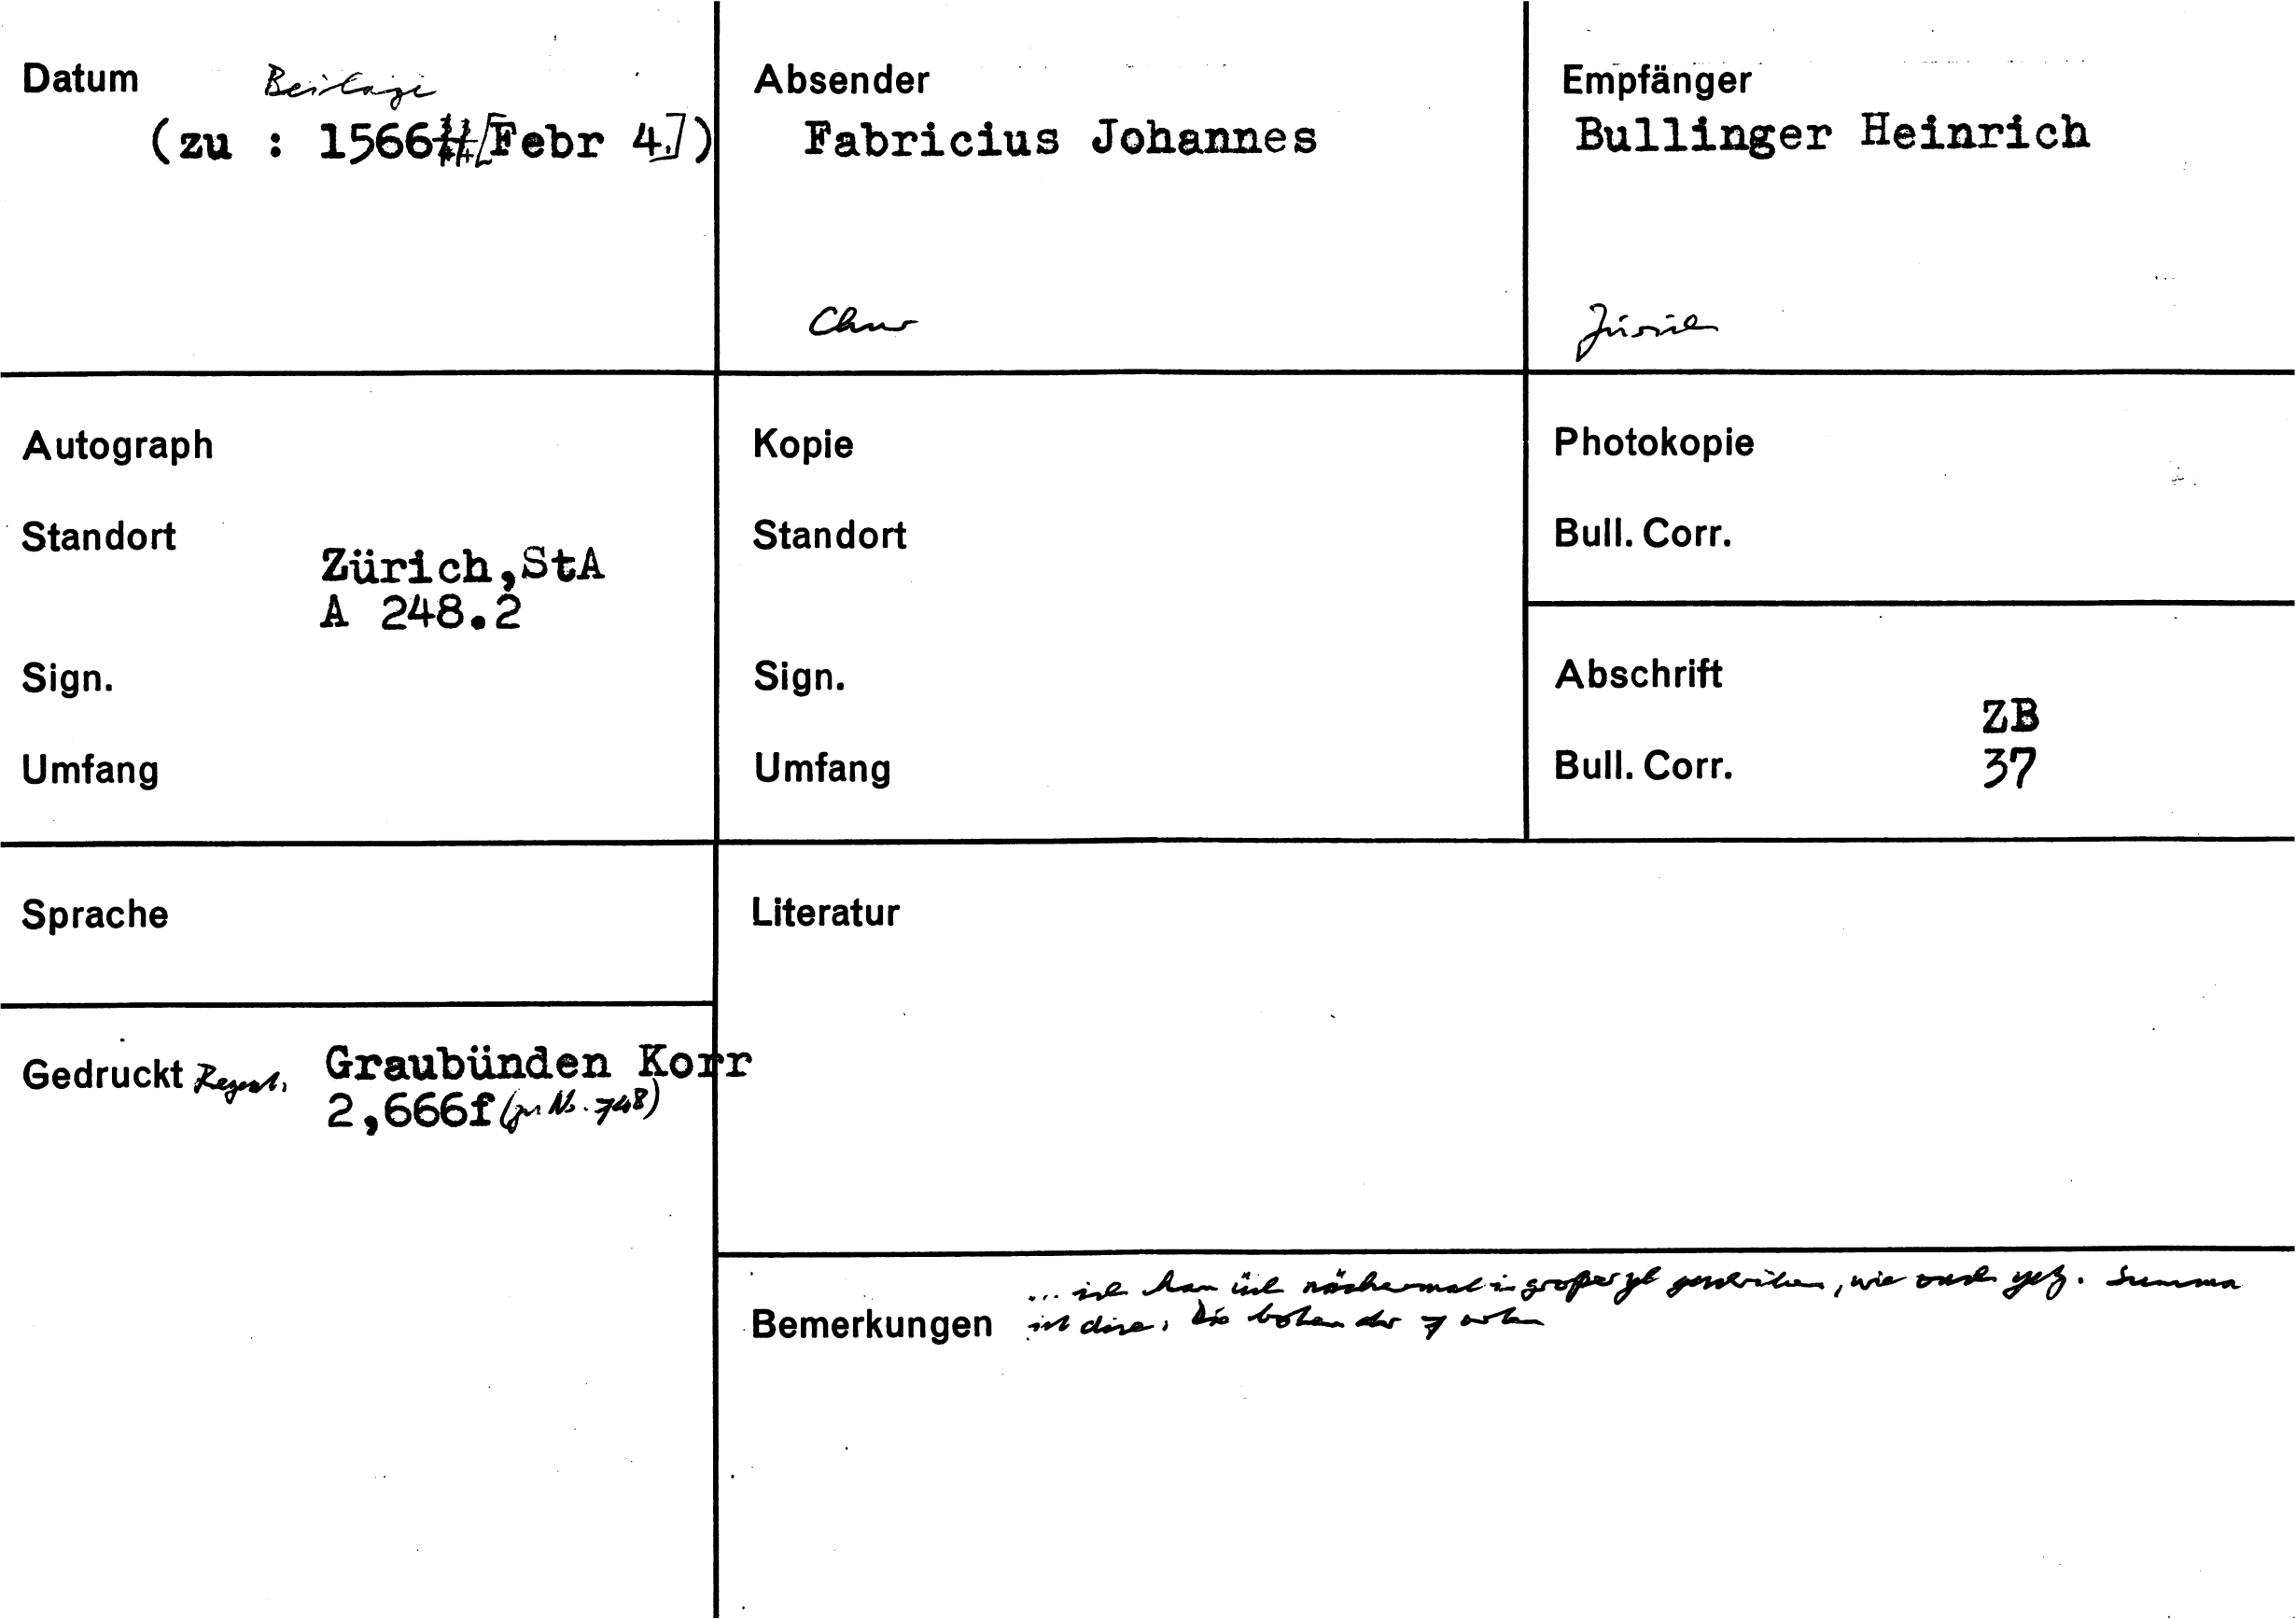 Datum
Beilage
(zu : 1566 [Febr 4.])
Absender
Fabricius Johannes
Chur
Empfänger
Bullinger Heinrich
Zürich
Autograph
Standort
Zürich,StA
A 248.2
Sign.
Umfang
Kopie
Standort
Sign.
Umfang
Photokopie
Bull. Corr.
Abschrift
ZB
Bull. Corr.
37
Sprache
Gedruckt Regest.
Graubünden Korr
2,666f (zu No. 748)
Literatur
Bemerkungen
... ich han üch nächermal in großer yl geschriben, wie ouch yetz. Summa
ist dise: Die boten der 7 orten